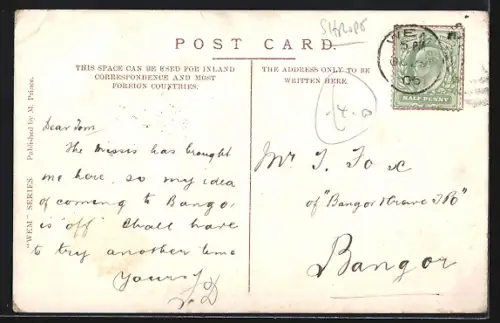 SHROPS
POST CARD.
THIS SPACE CAN BE USED FOR INLAND
CORRESPONDENCE AND MOST
FOREIGN COUNTRIES.
THE ADDRESS ONLY TO BE
WRITTEN HERE.
"WEM" SERIES. Published by M. Prince.
WEM
5 PM
05
HALF PENNY
4.0
Dear Tom
The Missis has brought
me here, so my idea
of coming to Bangor
is "off" Chall have
to try another time
Yours
Mr T. Fox
of "Bangor
Bangor